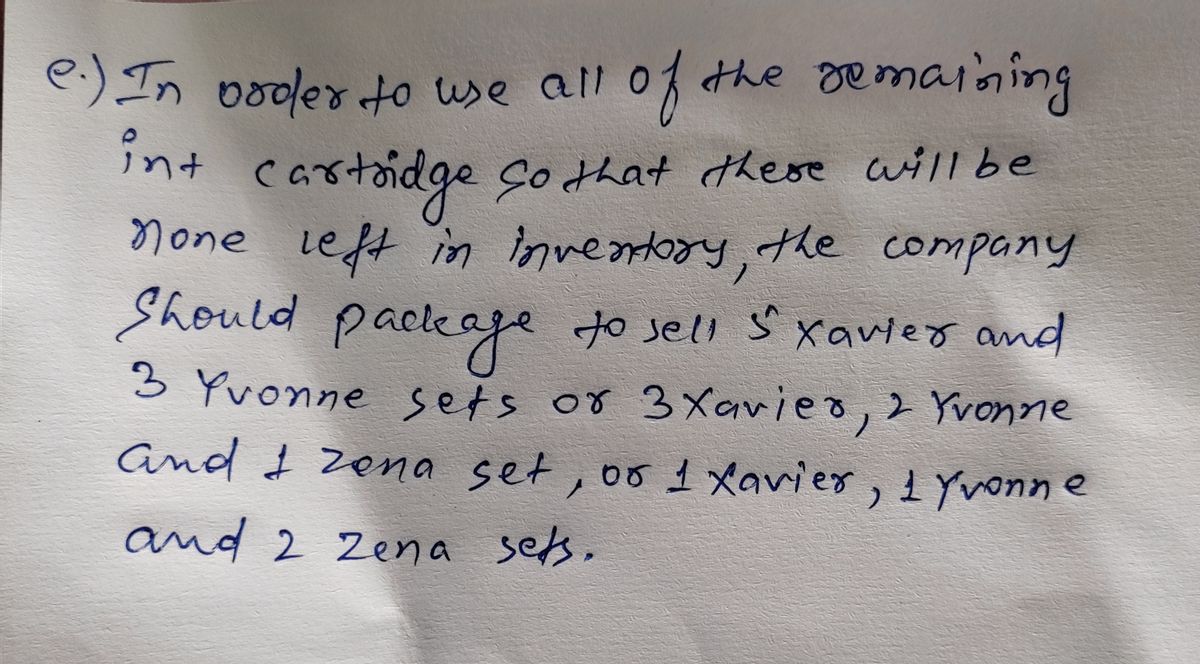 e.) In order to use all of the remaining
int cartridge so that there will be
none left in inventory, the company
Should package to sell 5 Xavier and
3 Yvonne sets or 3 Xavier, 2 Yvonne
and 1 Zena set, or 1 Xavier, 1 Yvonne
and 2 Zena sets.